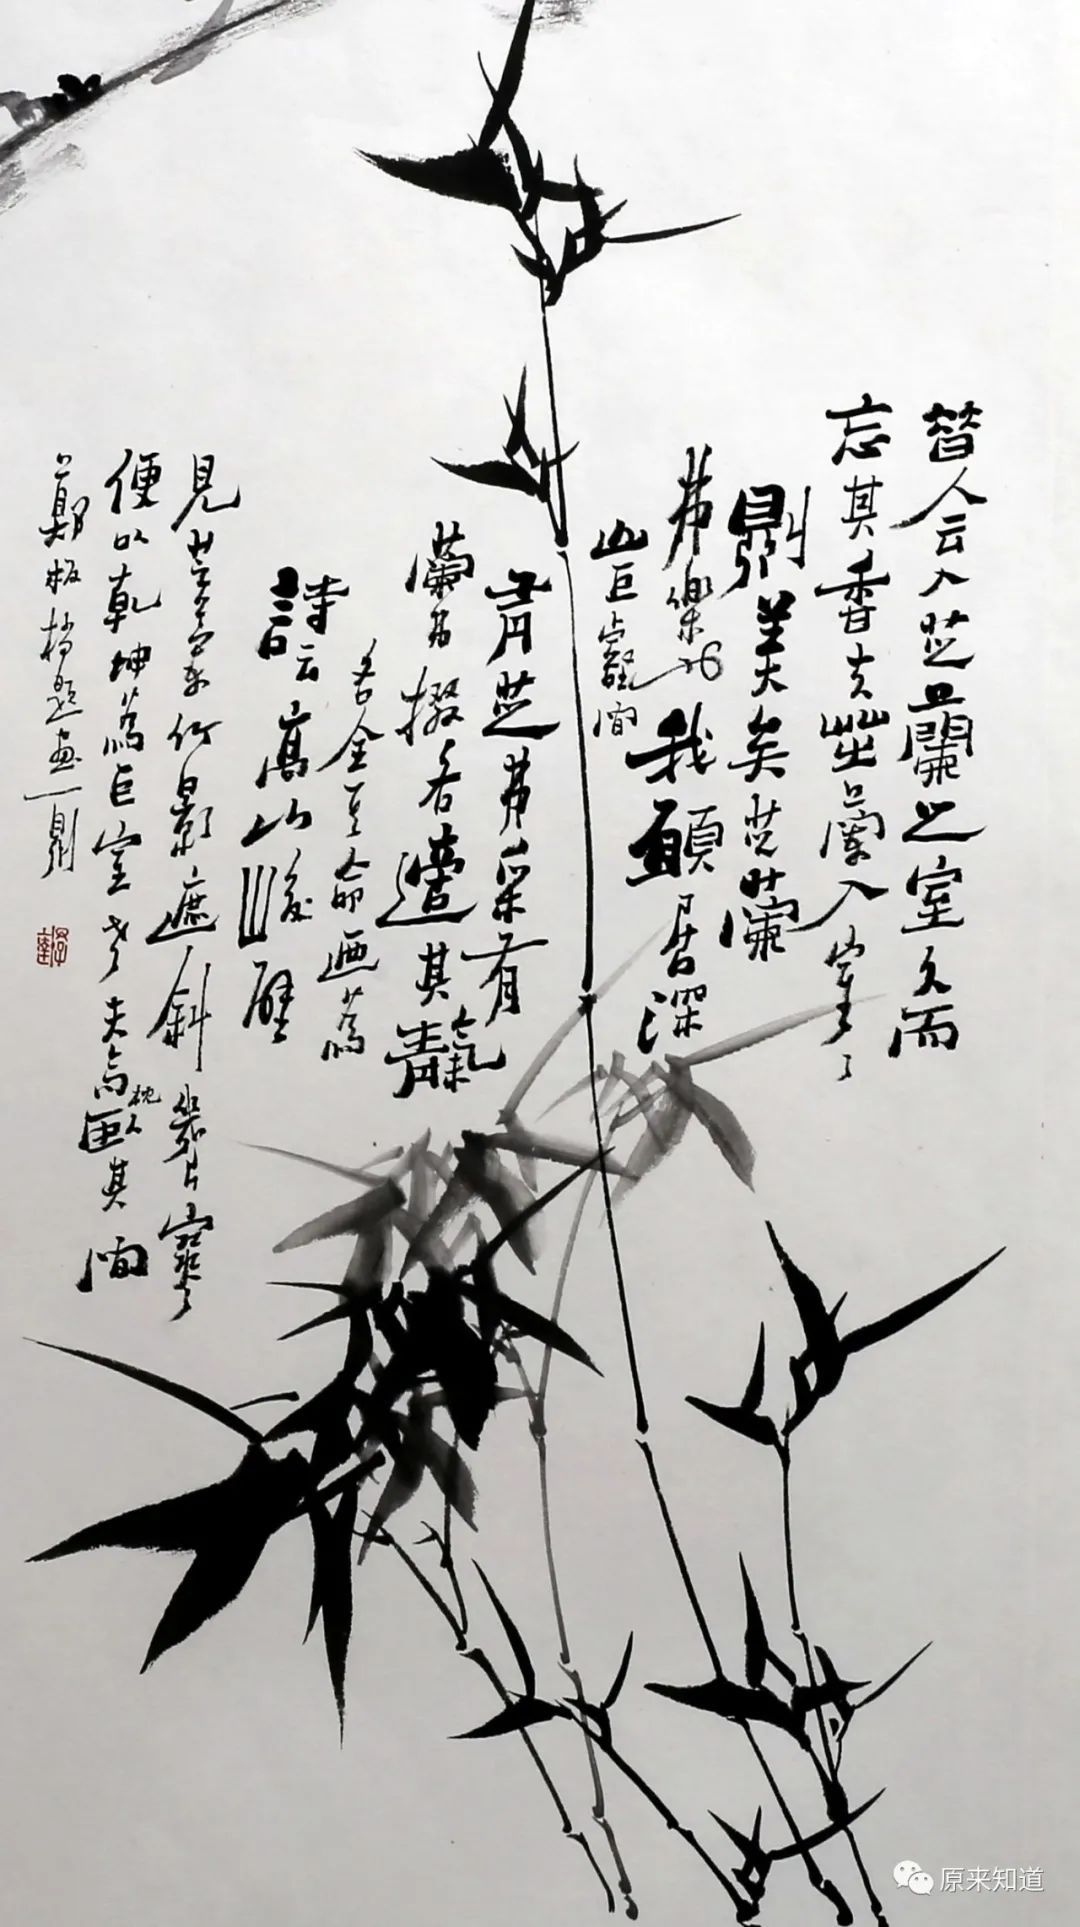 昔人云入芝蘭之室久而
忘其香夫芝蘭入室室
則美矣芝蘭
弗樂也我願居深
山巨壑間
有芝弗采有
蘭弗掇各適其靝
各全其命迺為
詩云高山峻壁
見芝蘭竹影遮斜幾片寒
便以乾坤為巨室老夫高枕臥其間
鄭板橋題畫一則
原来知道